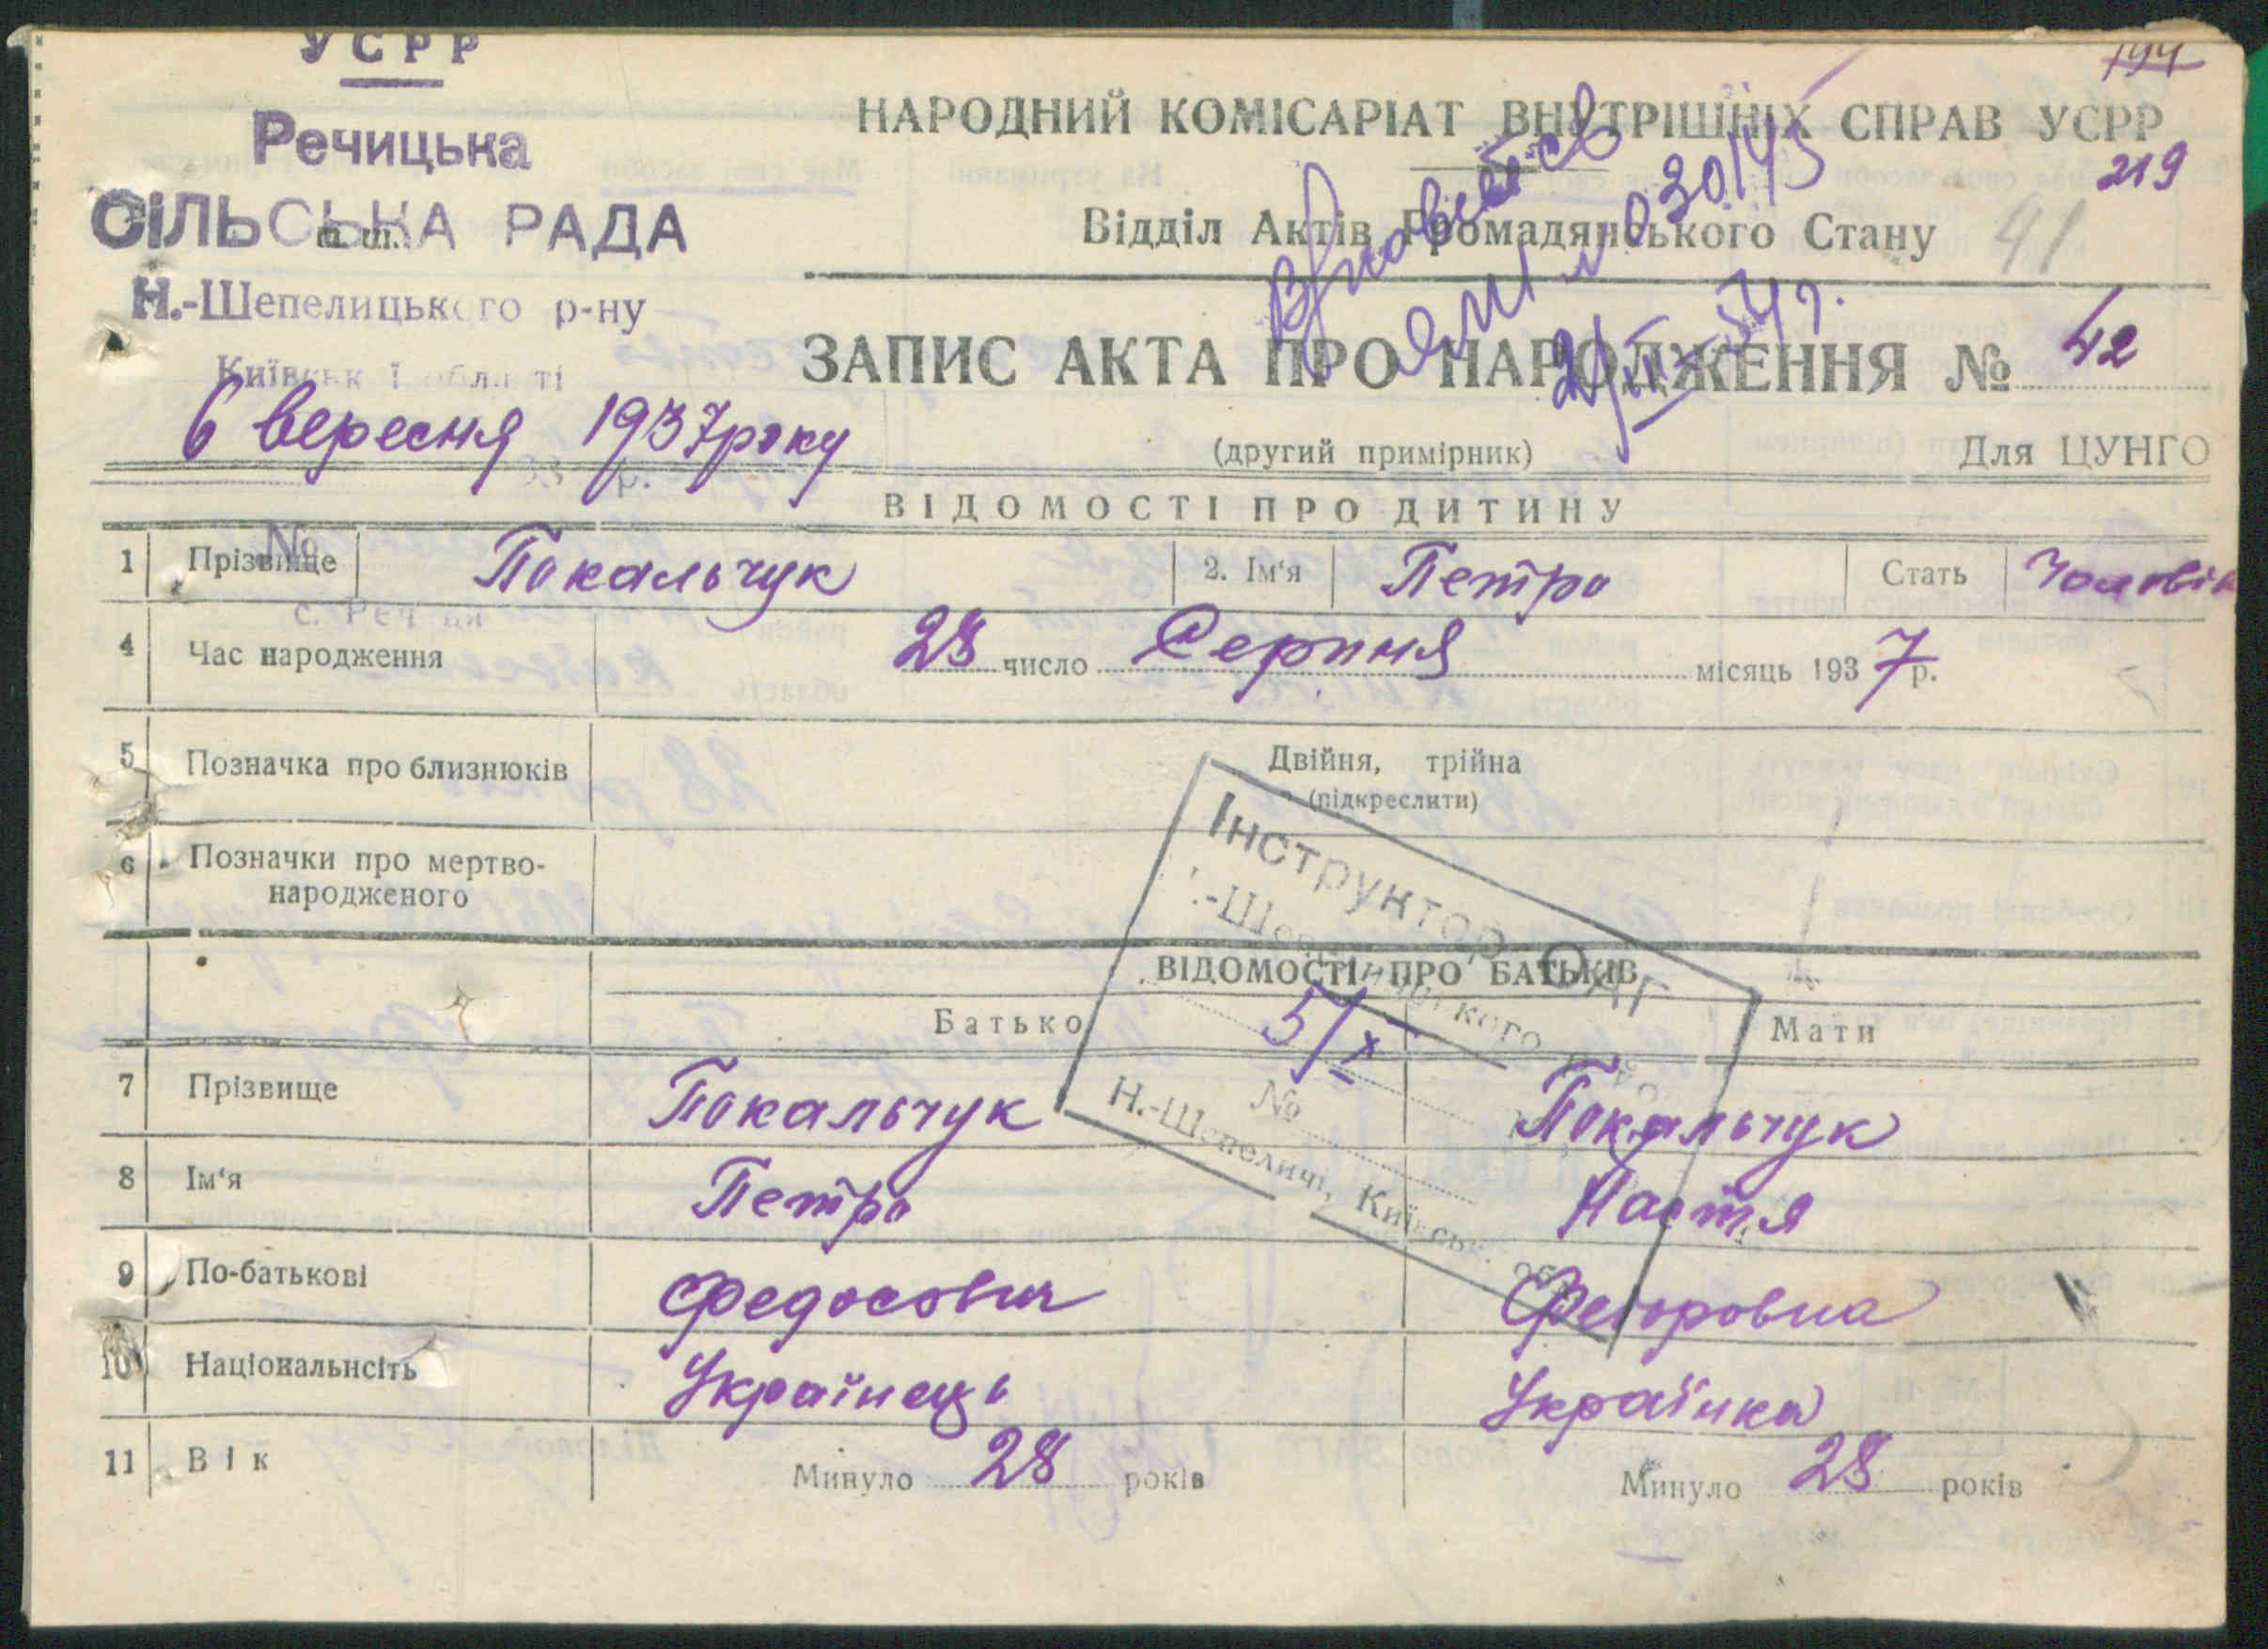 УСРР
Речицька
СІЛЬСЬКА РАДА
Н.-Шепелицького р-ну
Київської області
6 вересня 1937 року
№
с. Речиця
194
НАРОДНИЙ КОМІСАРІАТ ВНУТРІШНІХ СПРАВ УСРР
219
Відділ Актів Громадянського Стану
41
ЗАПИС АКТА ПРО НАРОДЖЕННЯ № 42
(другий примірник) Для ЦУНГО
ВІДОМОСТІ ПРО ДИТИНУ
1 Прізвище Покальчук 2. Ім'я Петро Стать Чоловік
4 Час народження 28 число Серпня місяць 1937 р.
5 Позначка про близнюків Двійня, трійна
(підкреслити)
6 Позначки про мертво-
народженого
Інструктор ОАГ
Н.-Шепелицького
№
Н.-Шепеличі, Київськ. обл.
5/X
ВІДОМОСТІ ПРО БАТЬКІВ
Батько Мати
7 Прізвище Покальчук Покальчук
8 Ім'я Петро Настя
9 По-батькові Федосович Федоровна
10 Національнсіть Українець Українка
11 Вік Минуло 28 років Минуло 28 років